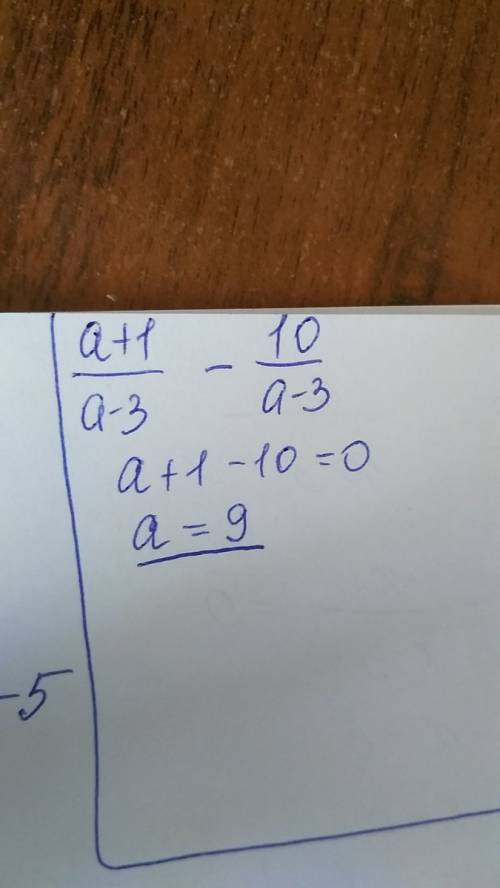 a+1 10
— - —
a-3 a-3
a+1-10=0
a=9
-5